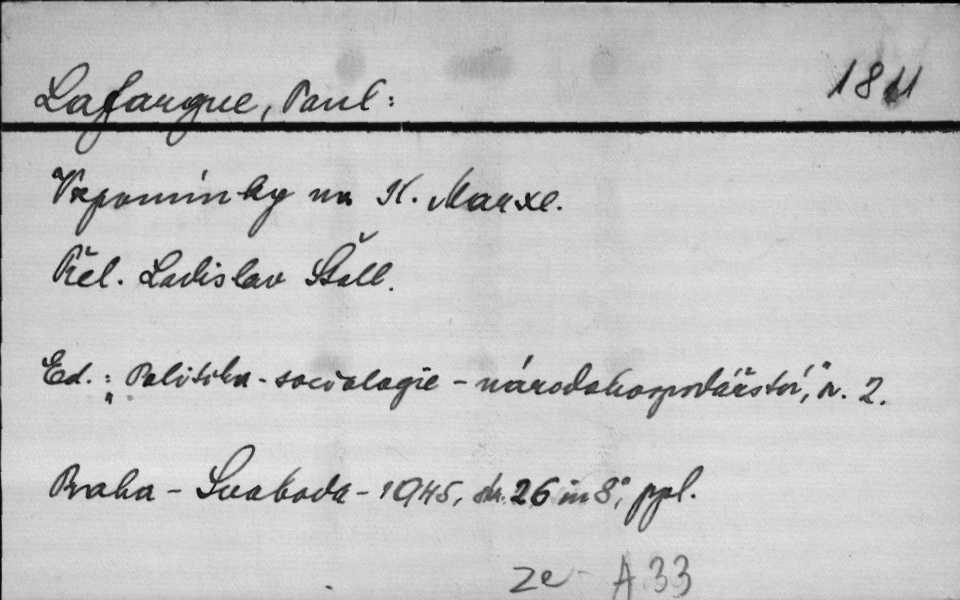 Lafargue, Paul:
Vzpomínky na K. Marxe.
Přel. Ladislav Štoll.
Ed.: „Politika - sociologie - národohospodářství," sv. 2.
Praha - Svoboda - 1945, str. 26 in 8°, ppl.
A 33